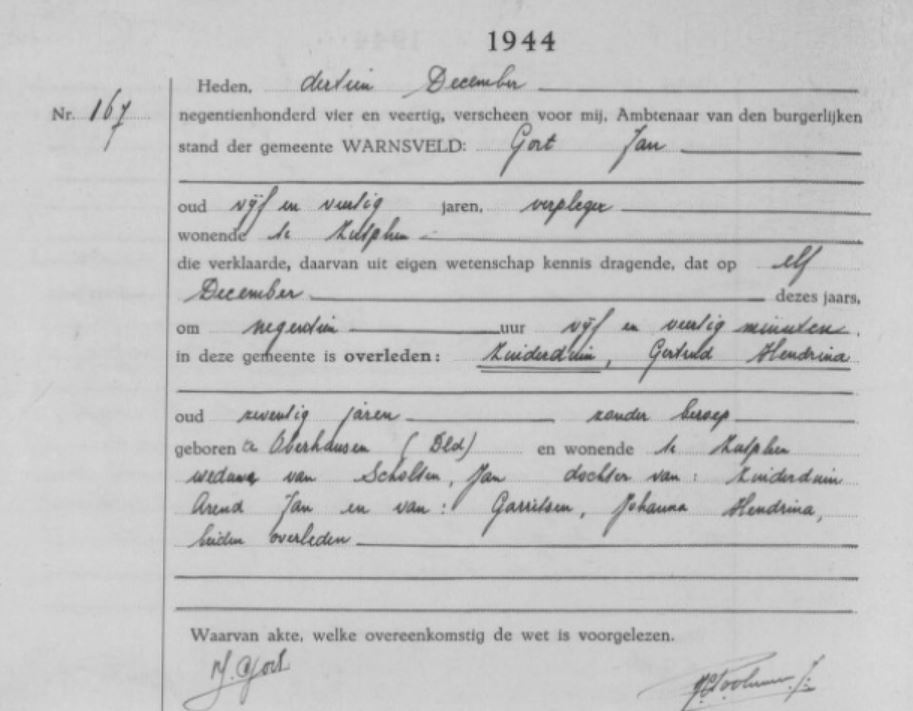 1944
Heden, dertien December
Nr. 167
negentienhonderd vier en veertig, verscheen voor mij, Ambtenaar van den burgerlijken
stand der gemeente WARNSVELD: Gort Jan
oud vijf en veertig jaren, verpleger
wonende te Zutphen
die verklaarde, daarvan uit eigen wetenschap kennis dragende, dat op elf
December dezes jaars,
om negentien uur vijf en veertig minuten.
in deze gemeente is overleden: Zuiderduin, Gertrud Hendrina
oud zeventig jaren zonder beroep
geboren te Oberhausen (Dld) en wonende te Zutphen
weduwe van Scholten, Jan dochter van: Zuiderduin
Arend Jan en van: Garritsen, Johanna Hendrina,
beiden overleden
Waarvan akte, welke overeenkomstig de wet is voorgelezen.
J. Gort